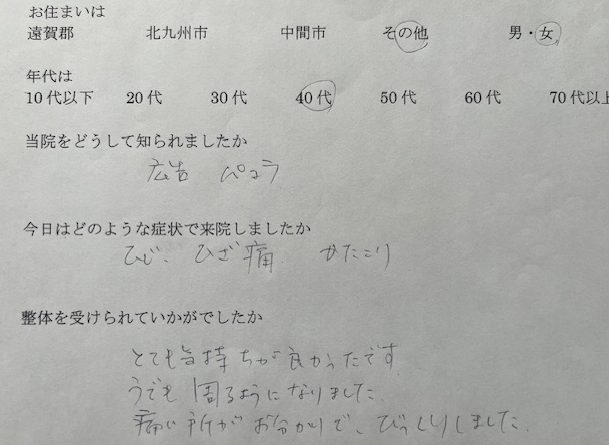 お住まいは
遠賀郡 北九州市 中間市 その他 男・女
年代は
10代以下 20代 30代 40代 50代 60代 70代以上
当院をどうして知られましたか
広告 ぴょう
今日はどのような症状で来院しましたか
ひじ、ひざ痛、かたこり
整体を受けられていかがでしたか
とても気持ちが良かったです
うでも回るようになりました
痛い所がお分かりで、びっくりしました